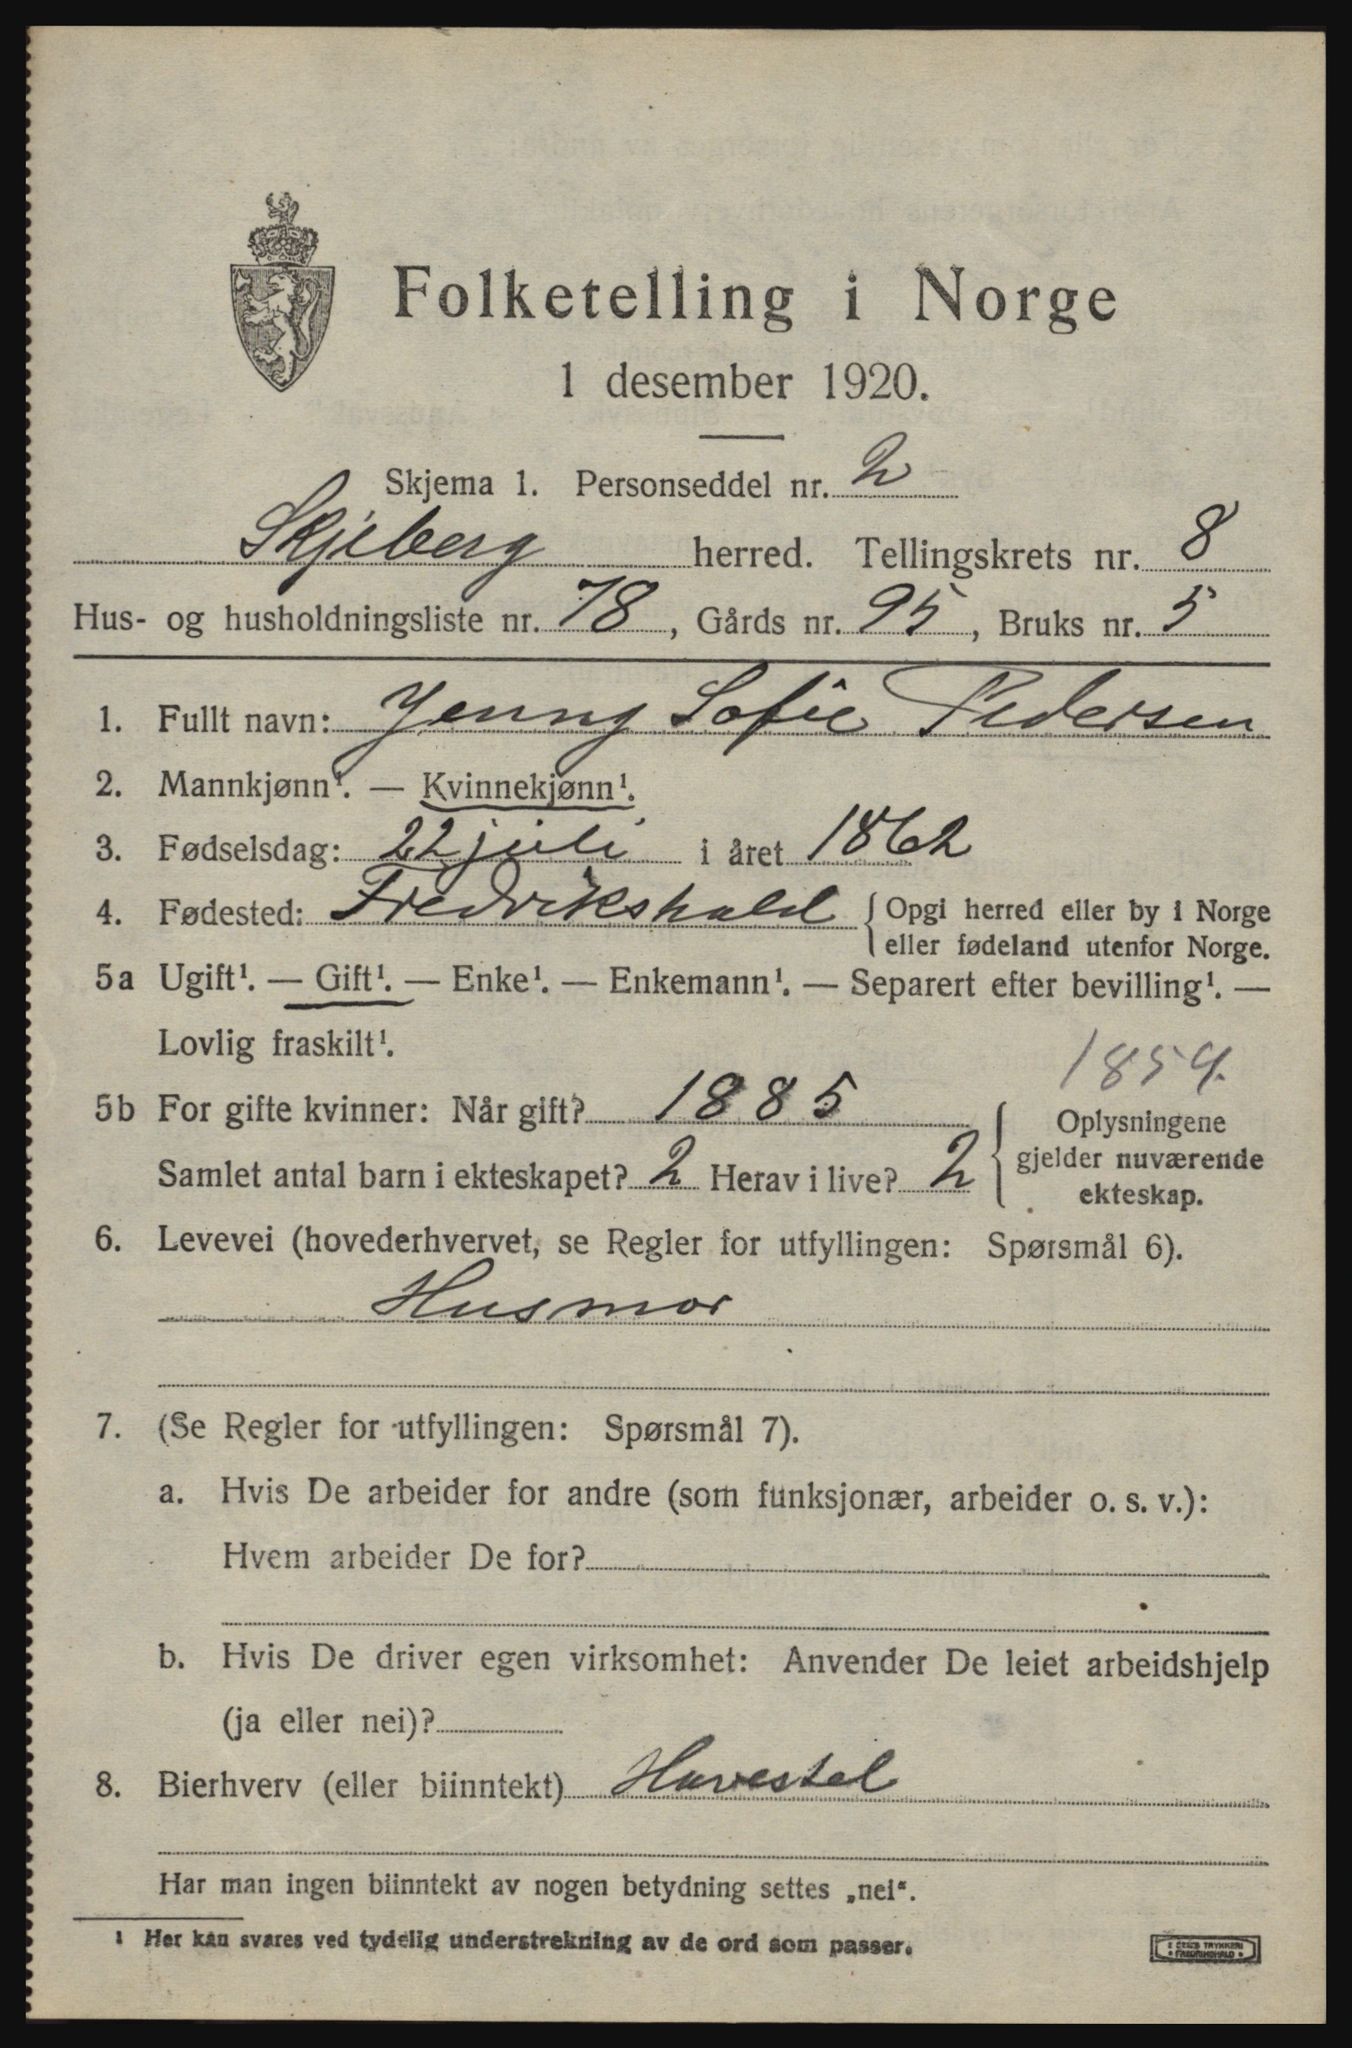 Folketelling i Norge
1 desember 1920.
Skjema 1. Personseddel nr. 2
Skjeberg herred. Tellingskrets nr. 8
Hus- og husholdningsliste nr. 78, Gårds nr. 95, Bruks nr. 5
1. Fullt navn: Jenny Sofie Pedersen
2. Mannkjønn¹. — Kvinnekjønn¹.
3. Fødselsdag: 22 juli i året 1862
4. Fødested: Fredrikshald { Opgi herred eller by i Norge
eller fødeland utenfor Norge.
5a Ugift¹. — Gift¹. — Enke¹. — Enkemann¹. — Separert efter bevilling¹. —
Lovlig fraskilt¹.
1859.
5b For gifte kvinner: Når gift? 1885
Samlet antal barn i ekteskapet? 2 Herav i live? 2
{ Oplysningene
gjelder nuværende
ekteskap.
6. Levevei (hovederhvervet, se Regler for utfyllingen: Spørsmål 6).
Husmor
7. (Se Regler for utfyllingen: Spørsmål 7).
a. Hvis De arbeider for andre (som funksjonær, arbeider o. s. v.):
Hvem arbeider De for?
b. Hvis De driver egen virksomhet: Anvender De leiet arbeidshjelp
(ja eller nei)?
8. Bierhverv (eller biinntekt) Havestel
Har man ingen biinntekt av nogen betydning settes „nei“.
¹ Her kan svares ved tydelig understrekning av de ord som passer.
TRYKKERI
FREDRIKSHALD